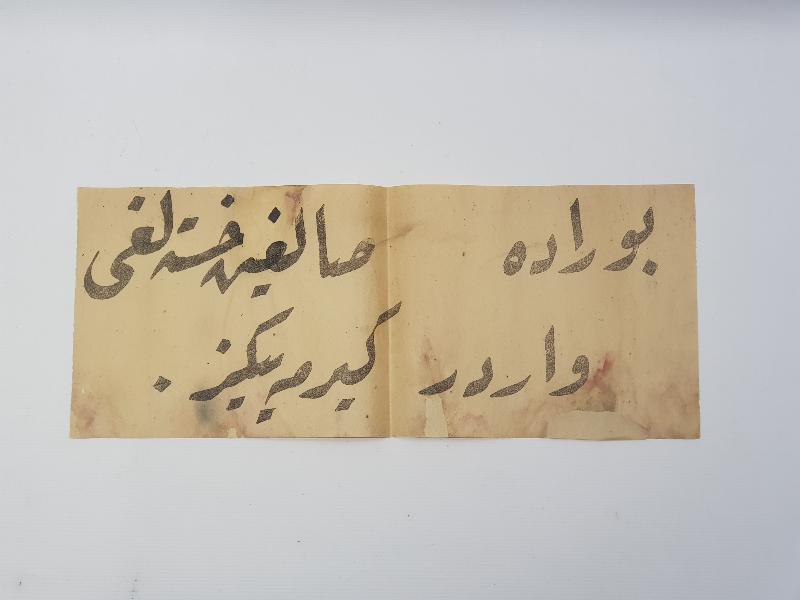 بوراده صالغين خسته لغى
واردر كيرمه ييكز .